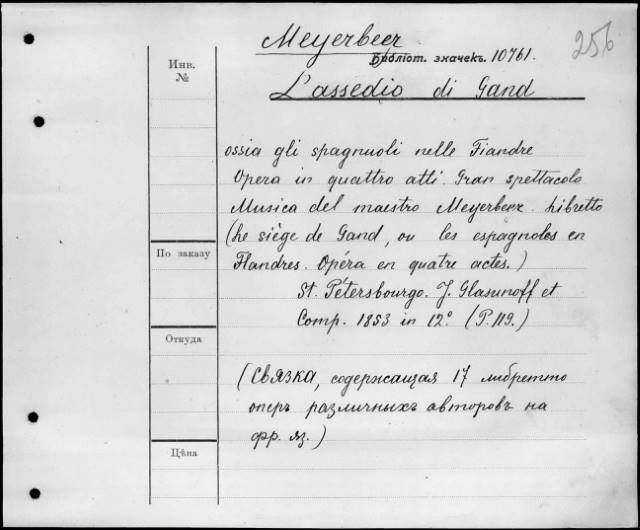 Meyerbeer
256
Инв.
№
Библіот. значекъ. 10761.
L'assedio di Gand
ossia gli spagnuoli nelle Fiandre
Opera in quattro atti. Gran spettacolo
Musica del maestro Meyerbeer. Libretto
(Le siège de Gand, ou les espagnoles en
По заказу
Flandres. Opéra en quatre actes.)
St. Pétersbourgo. J. Glasunoff et
Comp. 1853 in 12º (P. 119.)
Откуда
(Связка, содержащая 17 либретто
оперъ различныхъ авторовъ на
фр. яз.)
Цѣна